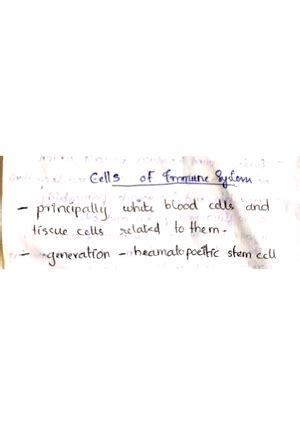 Cells of Immune System
- principally white blood cells and
tissue cells related to them.
- generation - heamatopoeitic stem cell